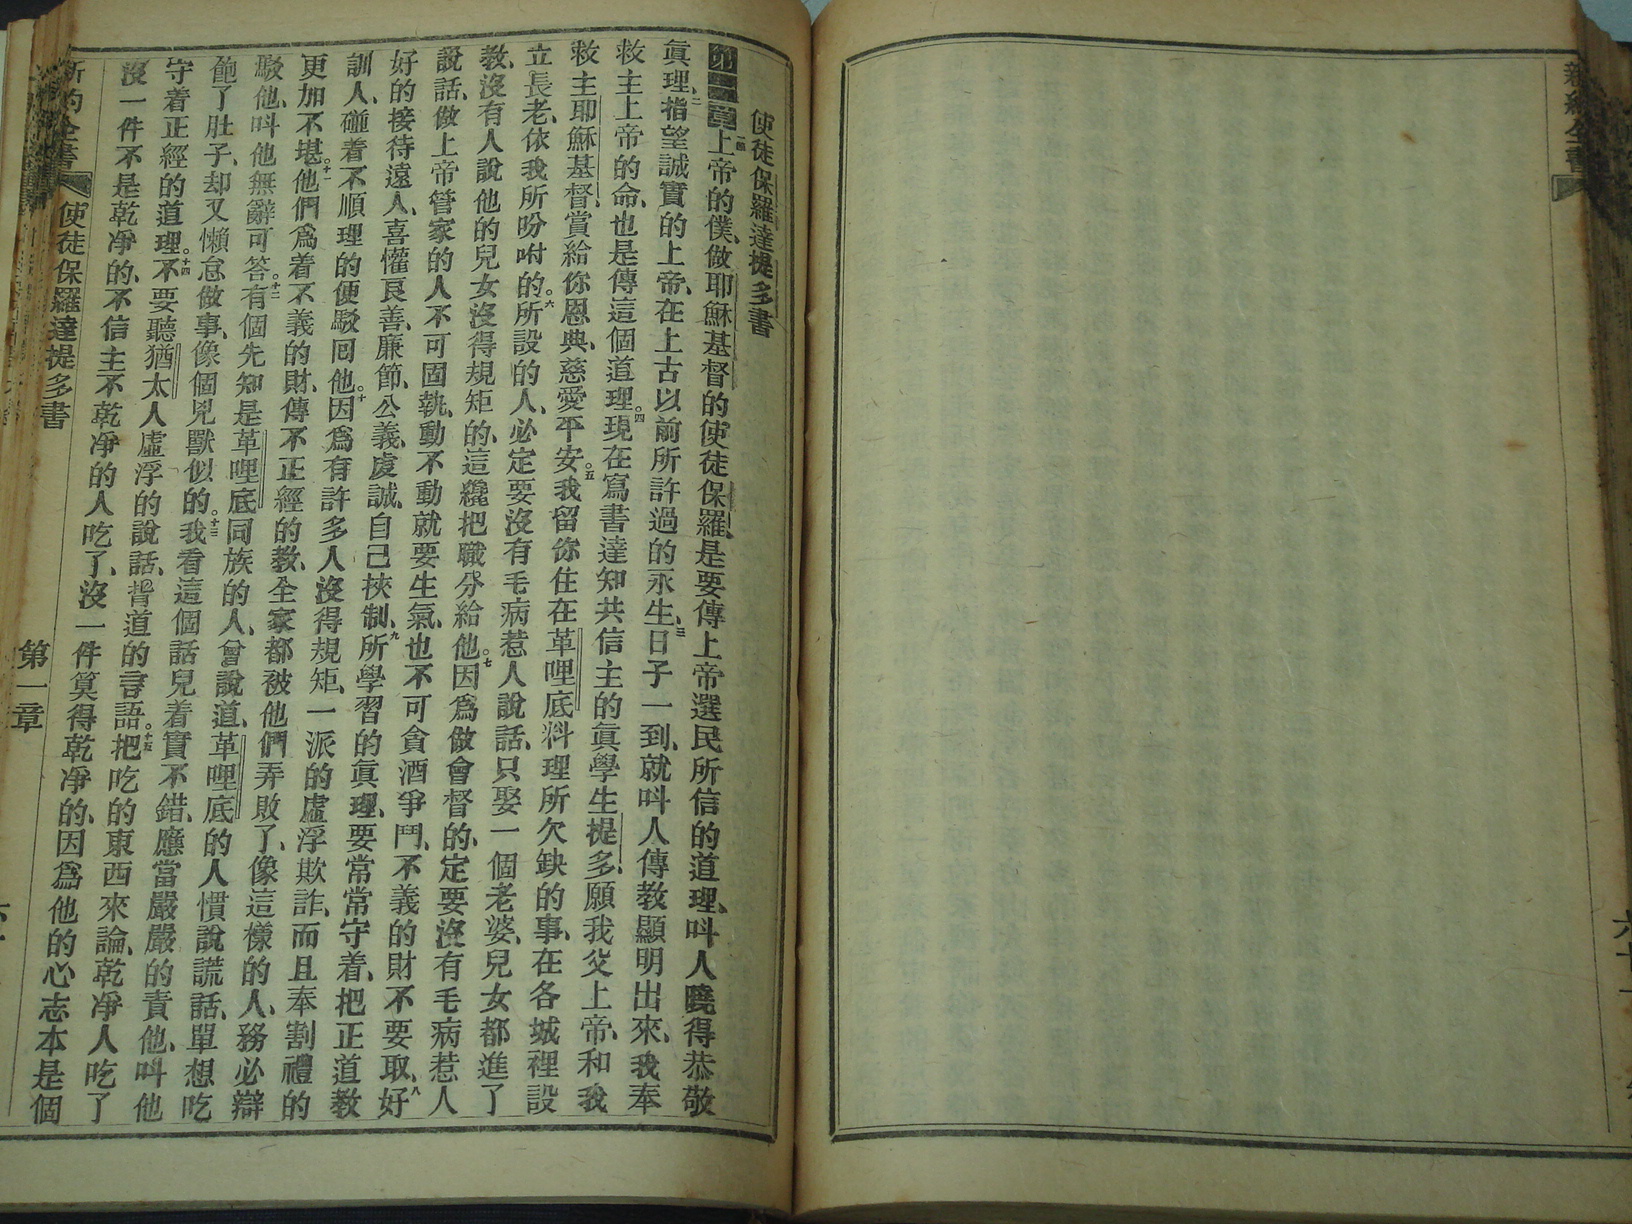 新約全書
使徒保羅達提多書
第一章 上帝的僕、做耶穌基督的使徒保羅、是要傳上帝選民所信的道理、呌人曉得恭敬
眞理、二指望誠實的上帝、在上古以前所許過的永生、三日子一到、就呌人傳教顯明出來、我奉
救主上帝的命、也是傳這個道理。四現在寫書達知共信主的眞學生提多、願我父上帝、和我
救主耶穌基督、賞給你恩典、慈愛平安。五我留你住在革哩底料理所欠缺的事、在各城裡設
立長老、依我所吩咐的。六所設的人、必定要沒有毛病惹人說話、只娶一個老婆、兒女都進了
教、沒有人說他的兒女沒得規矩的、這纔把職分給他。七因爲做會督的、定要沒有毛病惹人
說話、做上帝管家的人、不可固執、動不動就要生氣、也不可貪酒爭鬥、不義的財不要取、八好
好的接待遠人、喜懽良善、廉節、公義、虔誠、自己挾制、九所學習的眞理、要常常守着、把正道教
訓人、碰着不順理的便駁囘他。十因爲有許多人沒得規矩、一派的虛浮欺詐、而且奉割禮的
更加不堪。十一他們爲着不義的財、傳不正經的教、全家都被他們弄敗了、像這樣的人、務必辯
駁他、呌他無辭可答。十二有個先知是革哩底同族的人、曾說道、革哩底的人慣說謊話、單想吃
飽了肚子、却又懶怠做事、像個兇獸似的。十三我看這個話兒着實不錯、應當嚴嚴的責他、呌他
守着正經的道理。十四不要聽猶太人虛浮的說話、背道的言語。十五把吃的東西來論、乾凈人吃了
沒一件不是乾凈的、不信主不乾凈的人吃了、沒一件算得乾凈的、因爲他的心志本是個
新約全書 使徒保羅達提多書 第一章